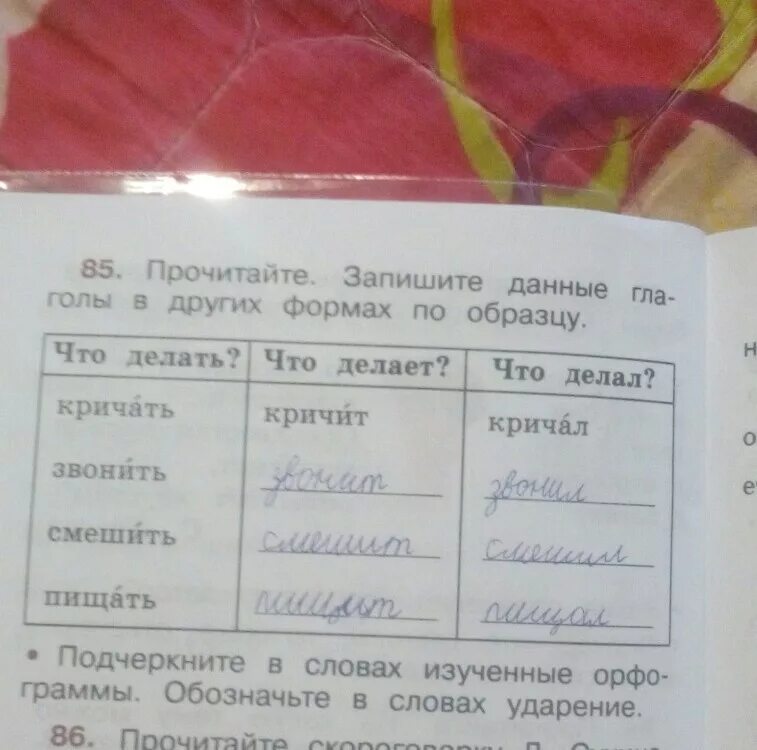 85. Прочитайте. Запишите данные гла-
голы в других формах по образцу.
Что делать? Что делает? Что делал?
крича́ть кричи́т крича́л
звони́ть звонит звонил
смеши́ть смешит смешил
пища́ть пищит пищал
• Подчеркните в словах изученные орфо-
граммы. Обозначьте в словах ударение.
86. Прочитайте скороговорку
н
о
е